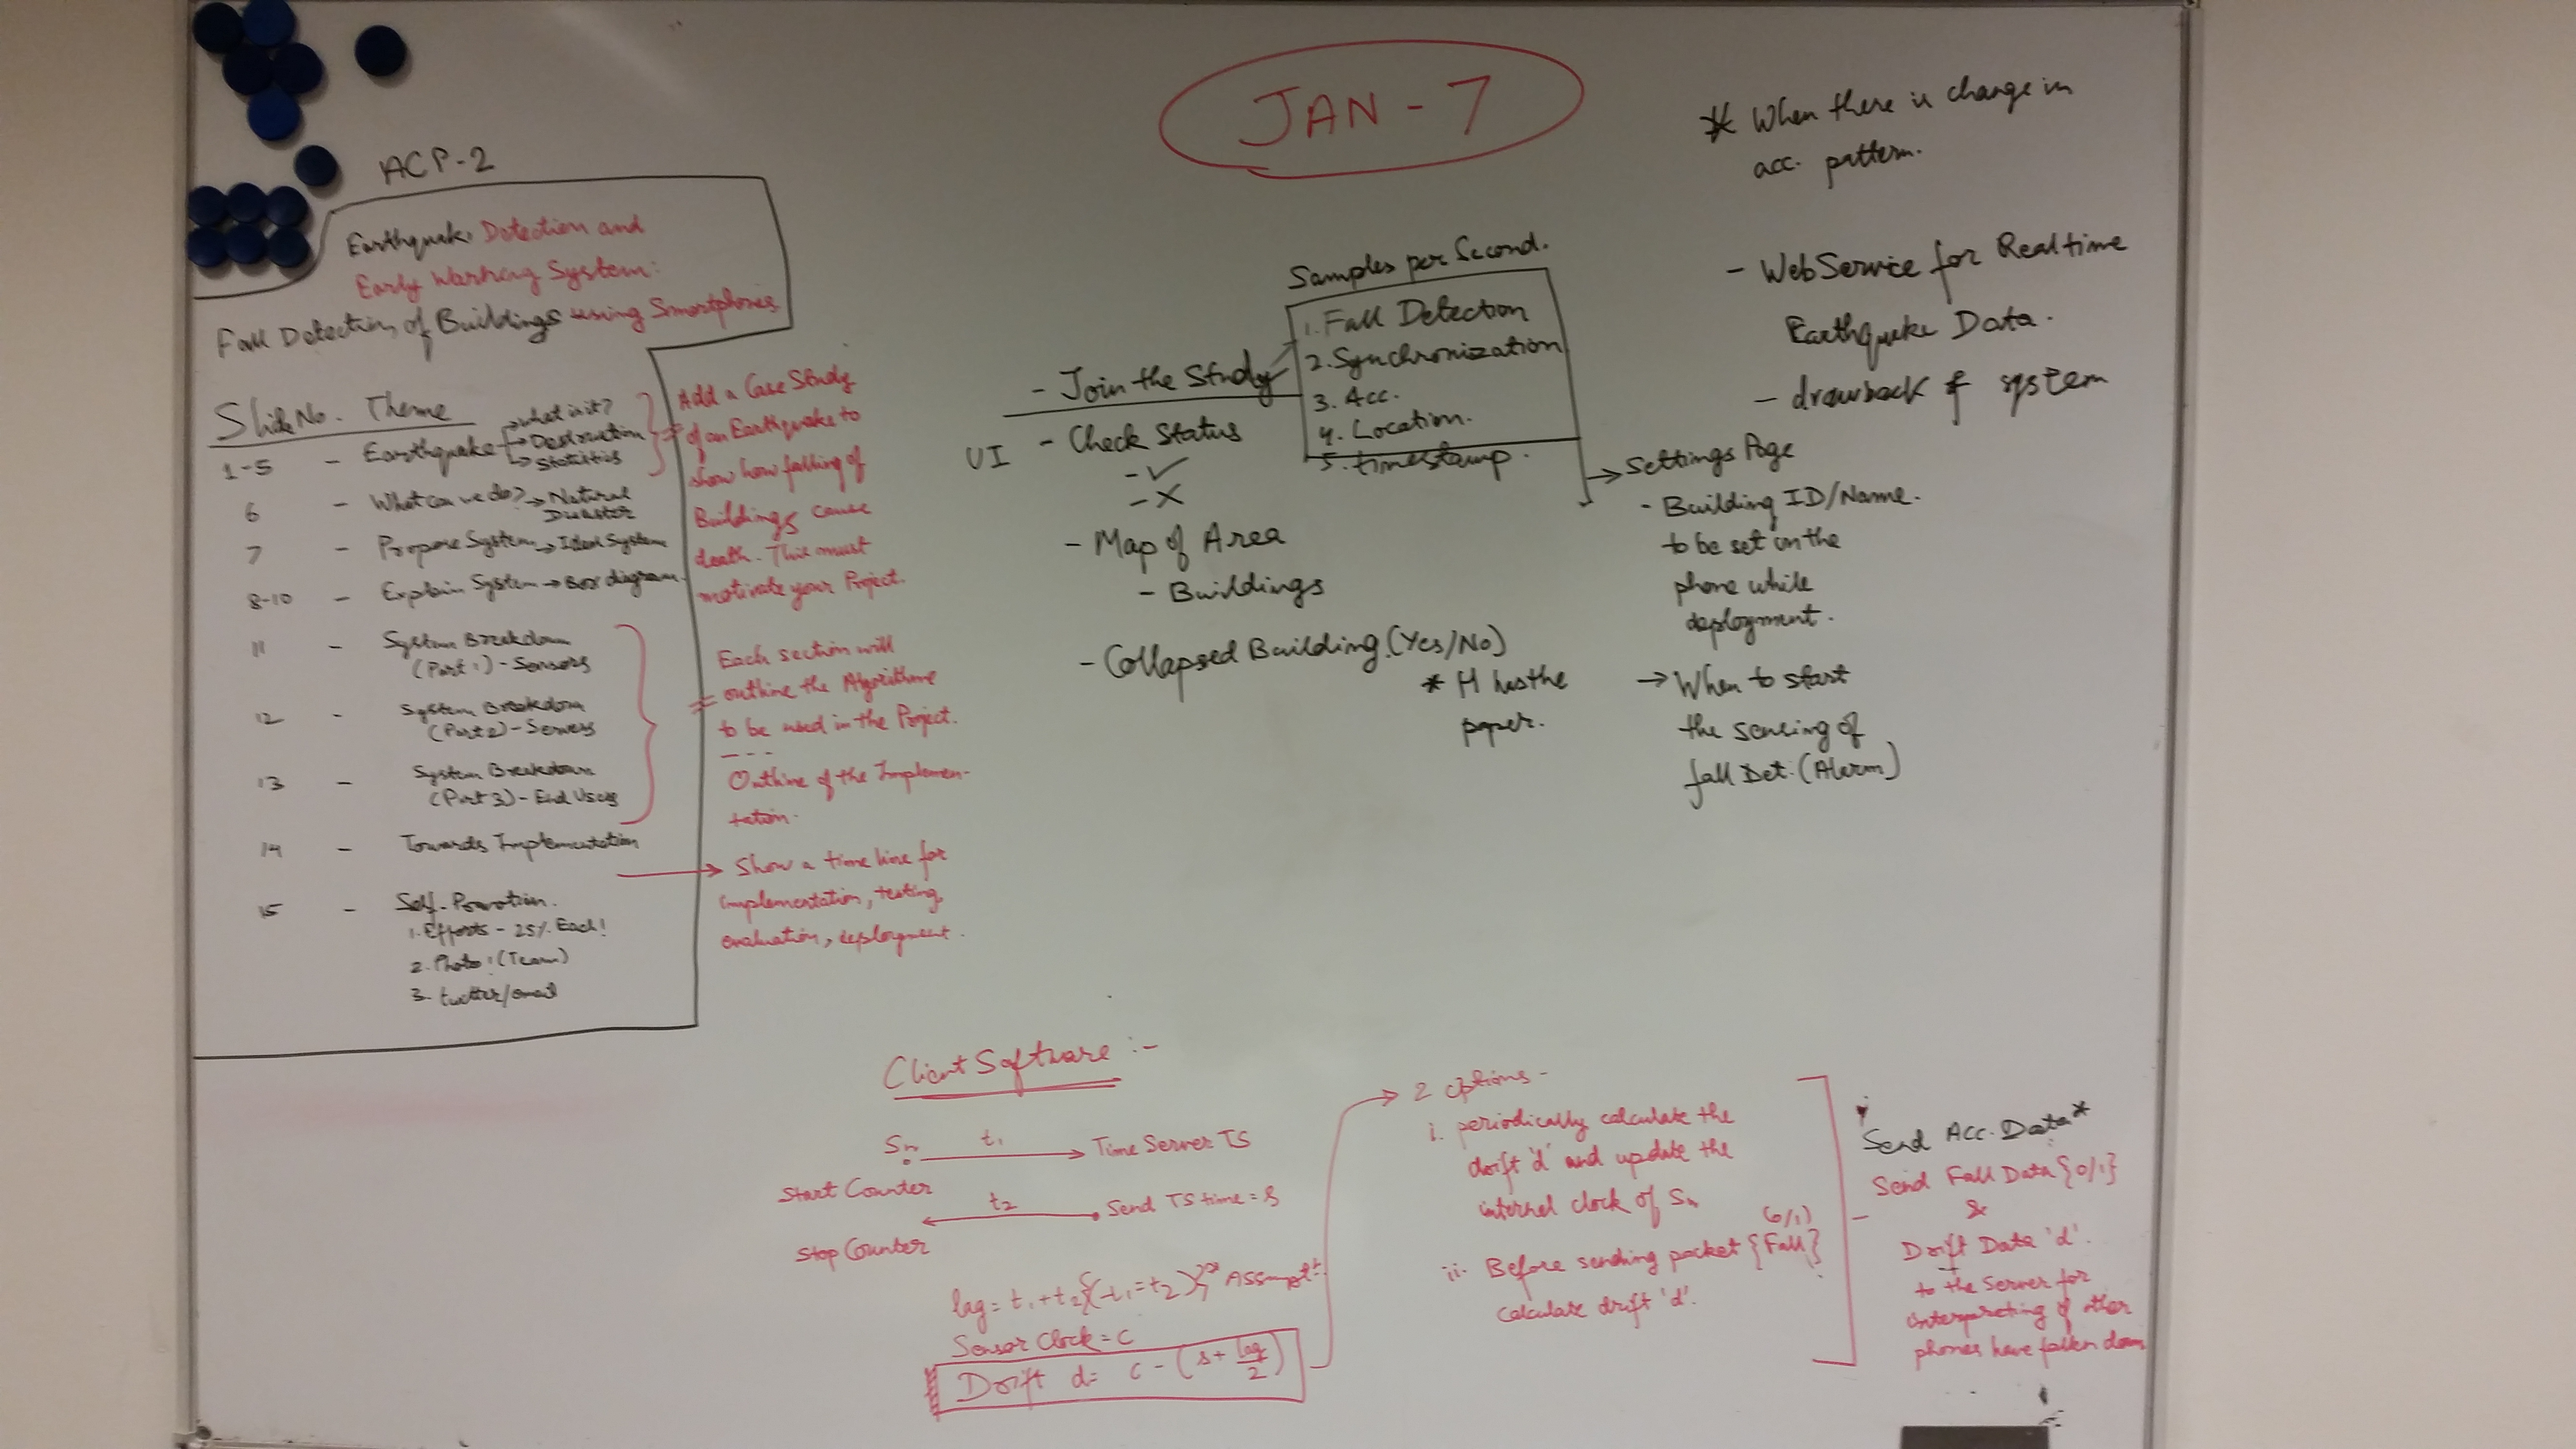 JAN - 7
ACP-2
Earthquake Detection and
Early Warning System:
Fall Detection of Buildings using Smartphones
Slide No. Theme
1-5 - Earthquake → what is it?
→ Destruction
→ Statistics
6 - What can we do? → Natural
Disaster
7 - Propose System → Ideal System
8-10 - Explain System → Box diagram.
11 - System Breakdown
(Part 1) - Sensors
12 - System Breakdown
(Part 2) - Servers
13 - System Breakdown
(Part 3) - End Users
14 - Towards Implementation
15 - Self-Promotion.
1. Efforts - 25% Each!
2. Photo: (Team)
3. twitter/email
Add a Case Study
of an Earthquake to
show how falling of
Buildings cause
death. This must
motivate your Project.
Each section will
outline the Algorithms
to be used in the Project.
- - -
Outline of the Implemen-
tation.
Show a time line for
implementation, testing,
evaluation, deployment.
Samples per Second.
1. Fall Detection
2. Synchronization
3. Acc.
4. Location.
5. timestamp.
- Join the Study
UI - Check Status
- ✓
- ✗
- Map of Area
- Buildings
- Collapsed Building (Yes/No)
* H has the
paper.
* When there is change in
acc. pattern.
- WebService for Realtime
Earthquake Data.
- drawback of system
→ Settings Page
- Building ID/Name.
to be set on the
phone while
deployment.
→ When to start
the sensing of
fall Det. (Alarm)
Client Software :-
Sn t1 → Time Server TS
Start Counter
t2 Send TS time = s
Stop Counter
lag = t1 + t2 {(t1 = t2)}
Sensor Clock = c
Drift d = c - (s + lag/2)
→ 2 options -
i. periodically calculate the
drift 'd' and update the
internal clock of Sn
(0/1)
ii. Before sending packet {Fall}
calculate drift 'd'.
Send Acc. Data*
Send Fall Data {0/1}
&
Drift Data 'd'.
to the Server for
interpreting if other
phones have fallen down